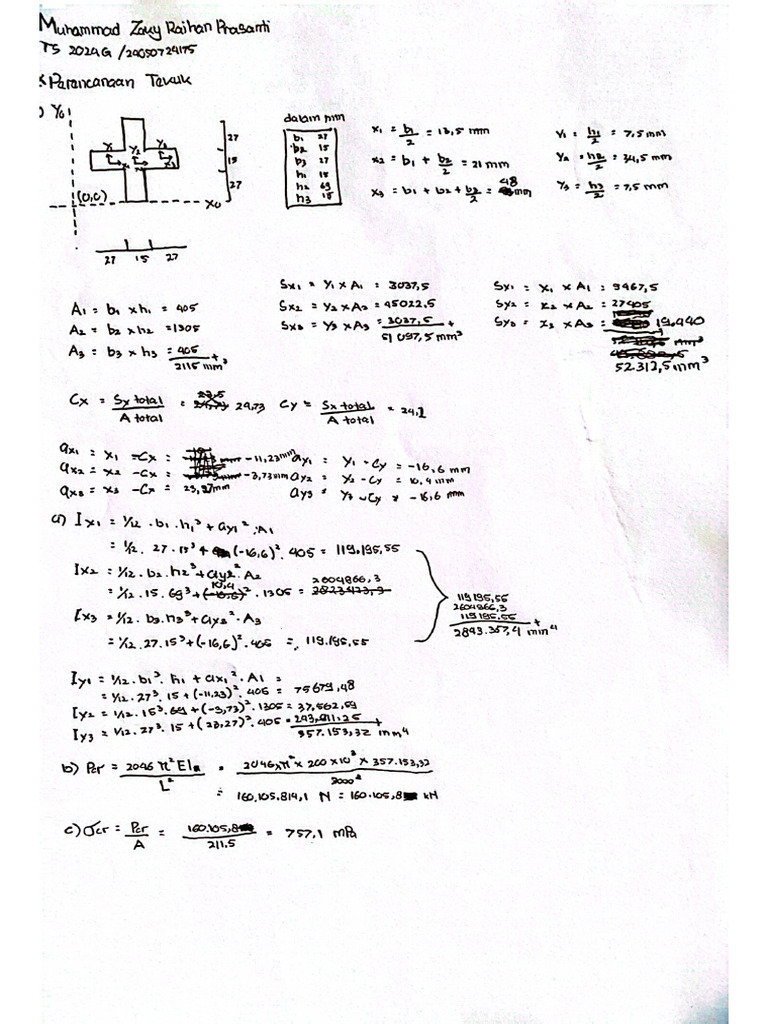 Muhammad Zaky Raihan Prasanti
TS 2024G / 24050724175
Parancangaan Tekuk
Y0
27
15
27
X0
(0,0)
27 15 27
dalam mm
b1 27
b2 15
b3 27
h1 15
h2 69
h3 15
x1 = b1/2 = 13,5 mm
x2 = b1 + b2/2 = 21 mm
x3 = b1 + b2 + b2/2 = 48 mm
Y1 = h1/2 = 7,5 mm
Y2 = h2/2 = 34,5 mm
Y3 = h3/2 = 7,5 mm
A1 = b1 x h1 = 405
A2 = b2 x h2 = 1305
A3 = b3 x h3 = 405
+
2115 mm³
Sx1 = Y1 x A1 = 3037,5
Sx2 = Y2 x A2 = 45022,5
Sx3 = Y3 x A3 = 3037,5
+
51 097,5 mm³
Sy1 = x1 x A1 = 5467,5
Sy2 = x2 x A2 = 27405
Sy3 = x3 x A3 = 19.440
52.312,5 mm³
Cx = Sy total / A total = 24,73
Cy = Sx total / A total = 24,1
ax1 = x1 - Cx = -11,23 mm
ax2 = x2 - Cx = -3,73 mm
ax3 = x3 - Cx = 23,27 mm
ay1 = Y1 - Cy = -16,6 mm
ay2 = Y2 - Cy = 10,4 mm
ay3 = Y3 - Cy = -16,6 mm
a) Ix1 = 1/12 . b1 . h1³ + ay1² . A1
= 1/2 . 27 . 15³ + (-16,6)² . 405 = 119.195,55
Ix2 = 1/12 . b2 . h2³ + ay2² . A2
= 1/12 . 15 . 69³ + (10,4)² . 1305 = 2604866,3
Ix3 = 1/12 . b3 . h3³ + ay2² . A3
= 1/12 . 27 . 15³ + (-16,6)² . 405 = 119.195,55
119195,55
2604866,3
119195,55
+
2843.357,4 mm⁴
Iy1 = 1/12 . b1³ . h1 + ax1² . A1 =
= 1/12 . 27³ . 15 + (-11,23)² . 405 = 75679,48
Iy2 = 1/12 . 15³ . 69 + (-3,73)² . 1305 = 37.562,59
Iy3 = 1/12 . 27³ . 15 + (23,27)² . 405 = 243.911,25
+
357.153,32 mm⁴
b) Pcr = 2046 π² EIa / L² = 2046 x π² x 200 x 10³ x 357.153,32 / 2000²
= 160.105.814,1 N = 160.105,8 kN
c) σcr = Pcr / A = 160.105,8 / 211.5 = 757,1 mPa